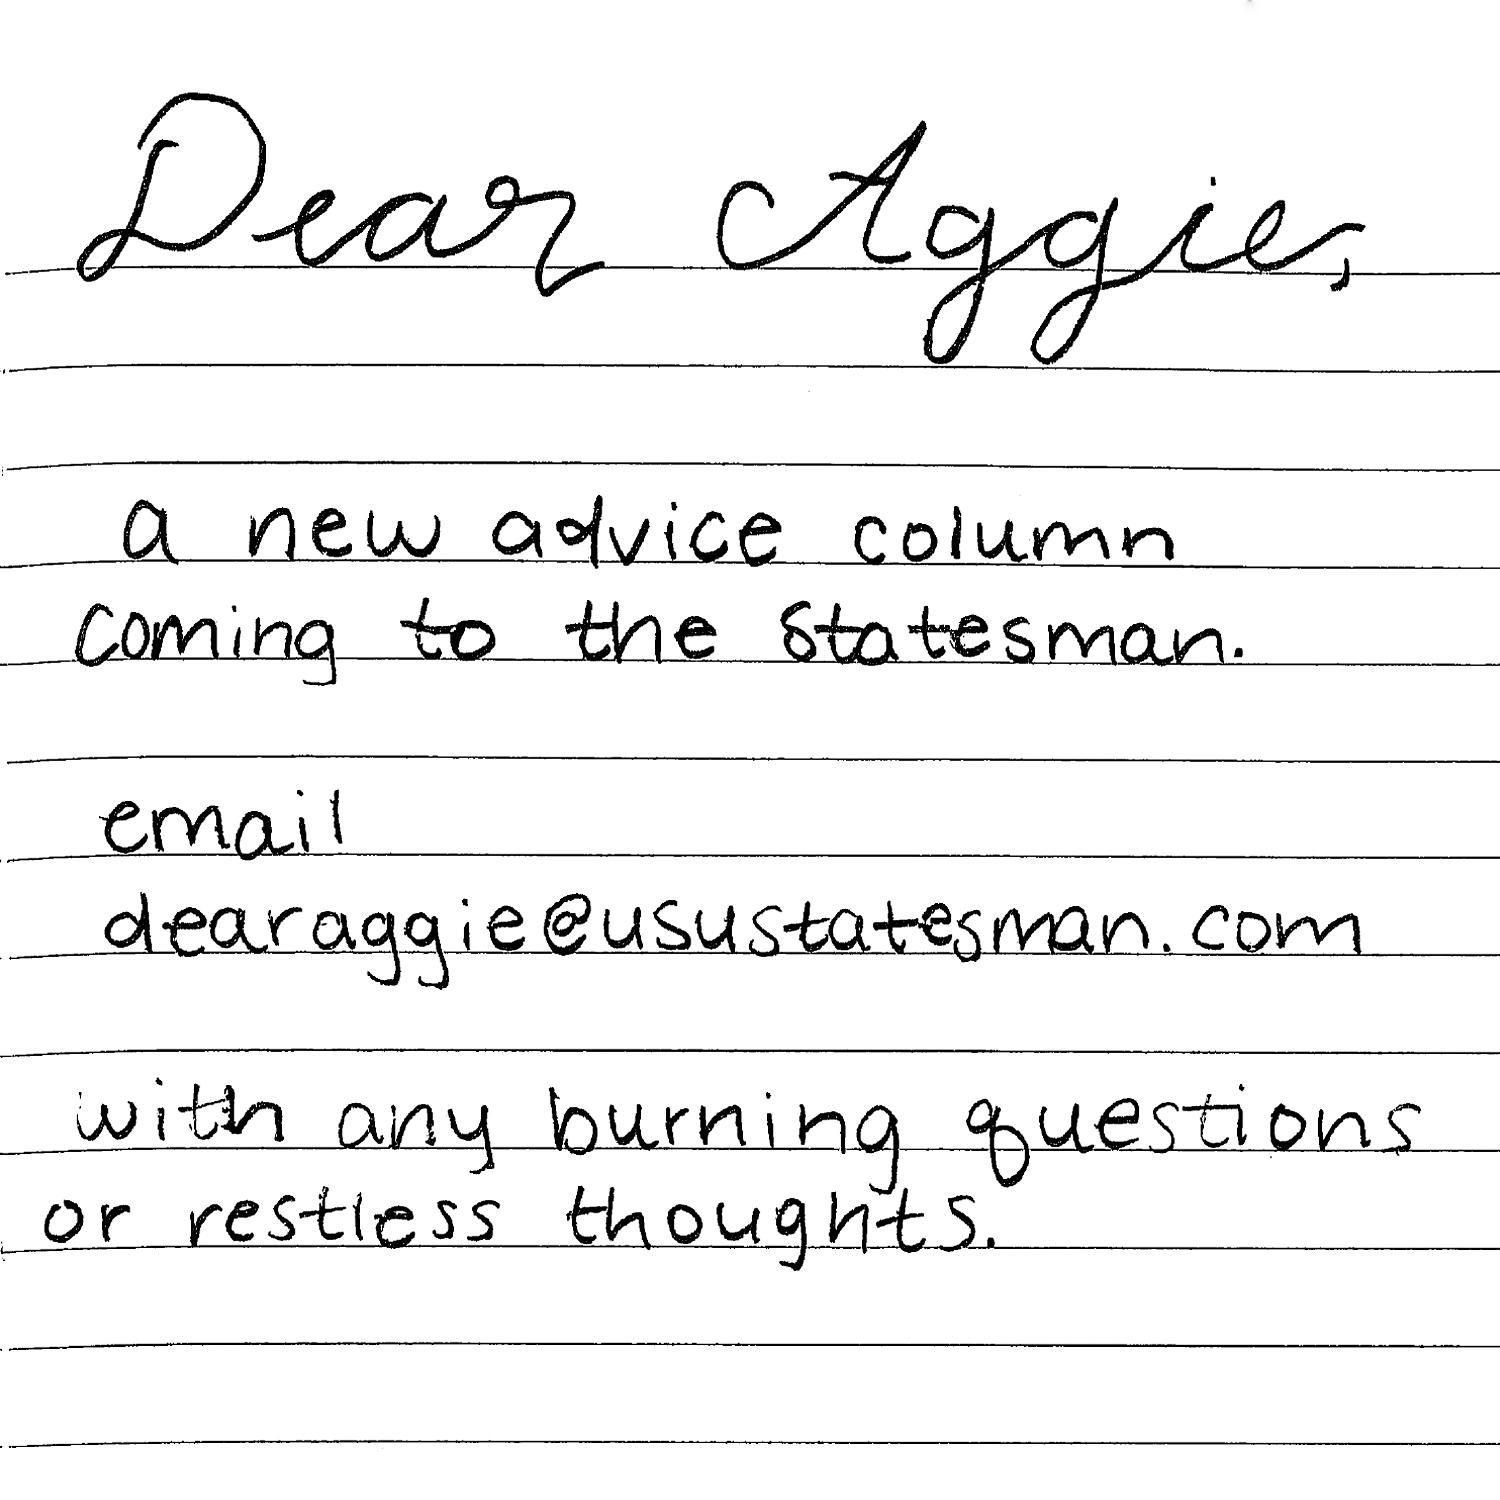 Dear Aggie,
a new advice column
coming to the Statesman.
email
dearaggie@usustatesman.com
with any burning questions
or restless thoughts.